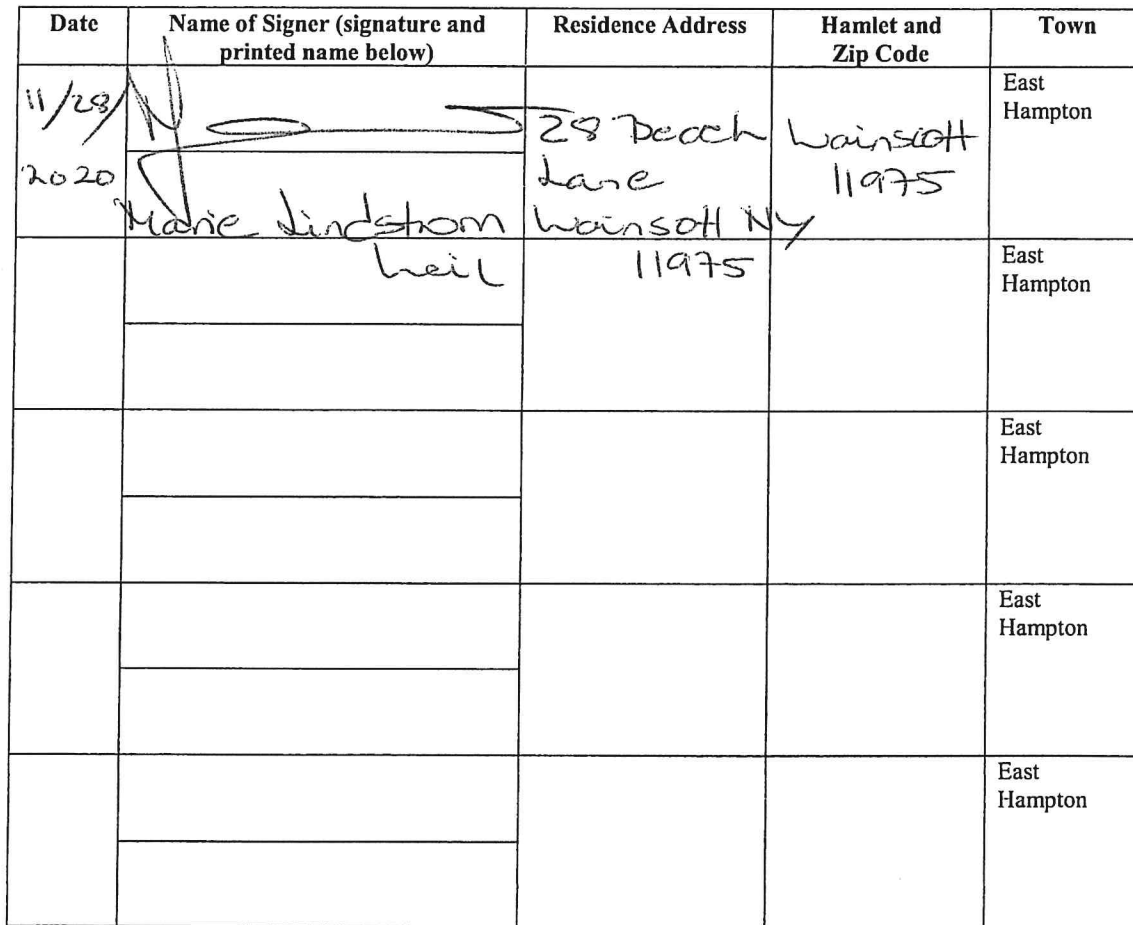 Date
Name of Signer (signature and
printed name below)
Residence Address
Hamlet and
Zip Code
Town
11/28/
2020
Marie Lindstrom
28 Beach
Lane
Wainsott NY
11975
Wainscott
11975
East
Hampton
East
Hampton
East
Hampton
East
Hampton
East
Hampton